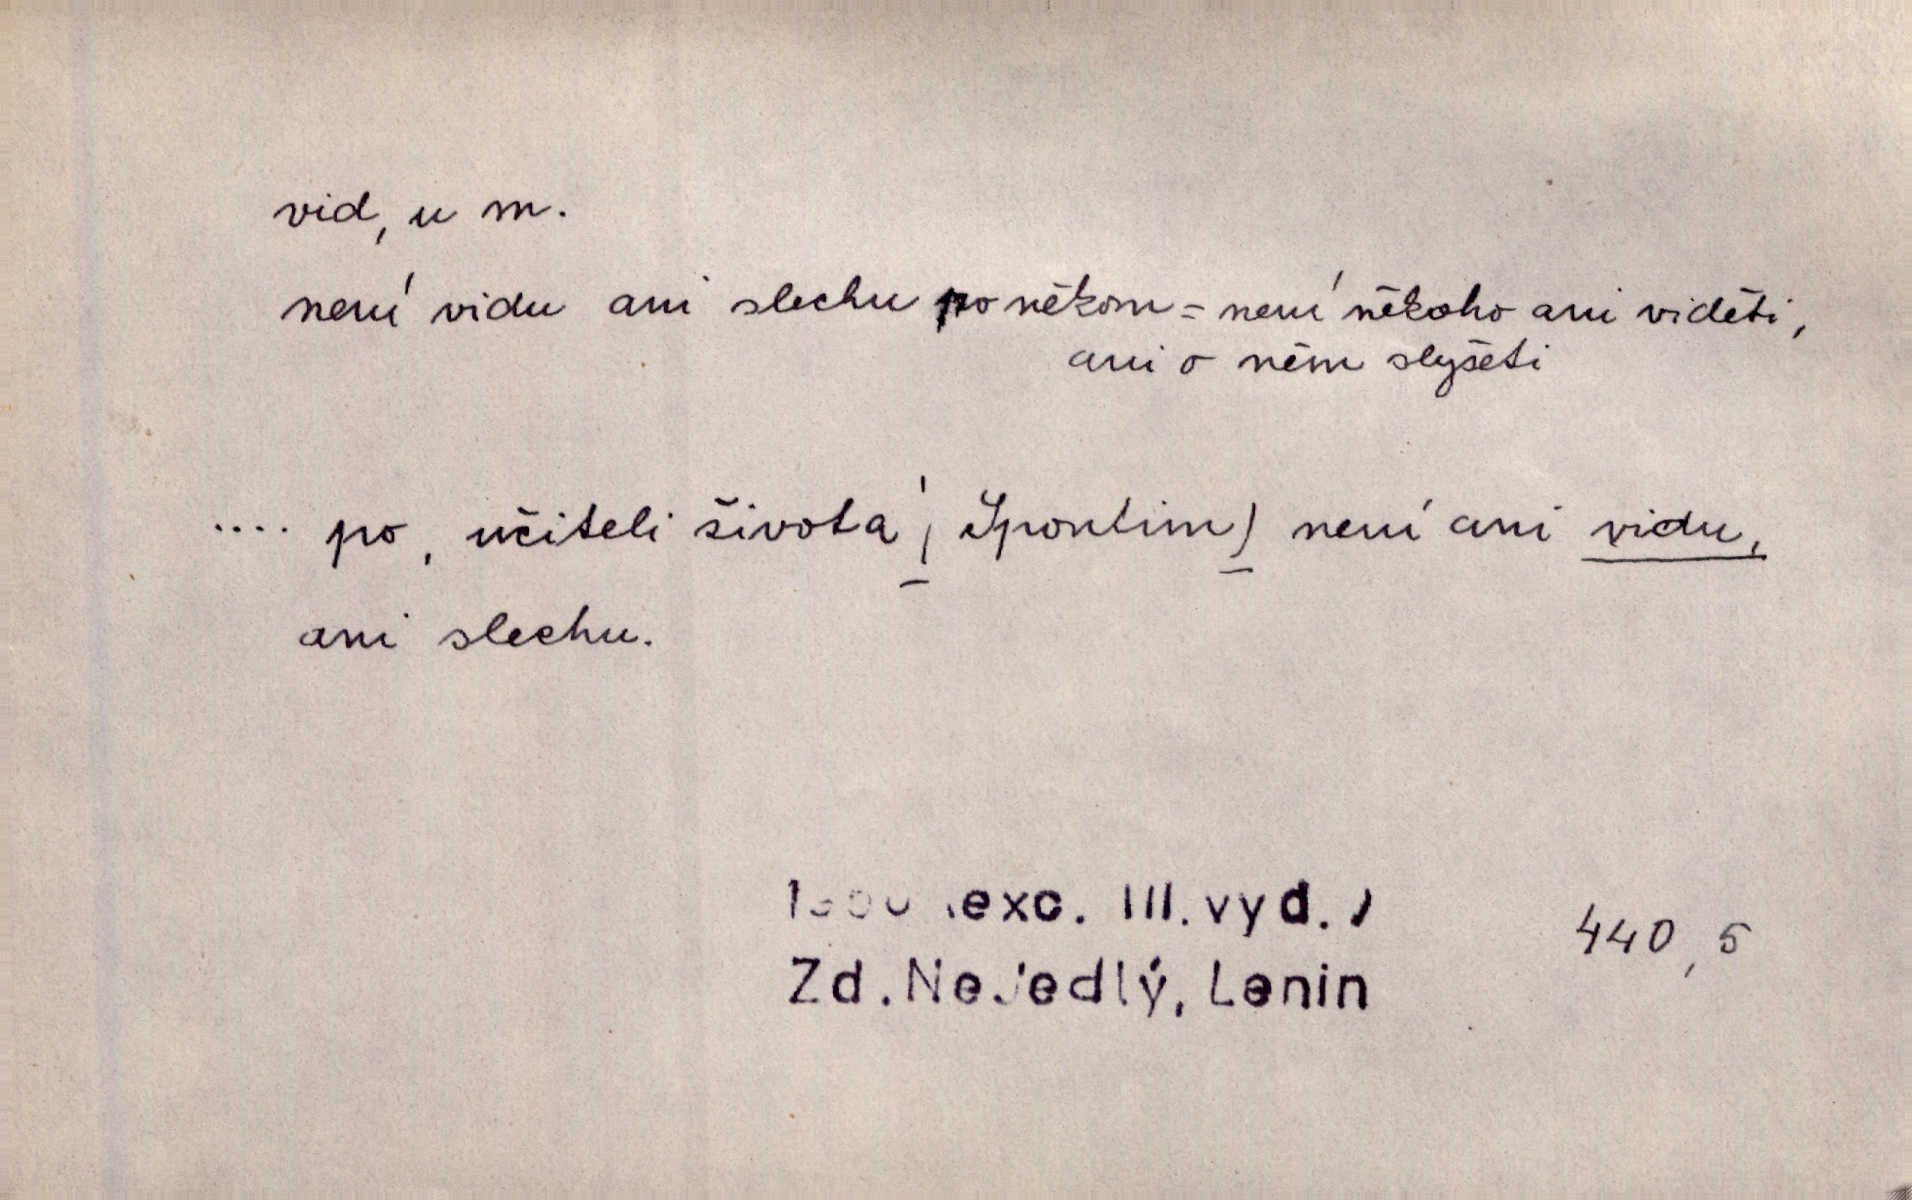 vid, u m.
není vidu ani slechu po někom = není někoho ani viděti,
ani o něm slyšeti
.... po ‚učiteli života‘ (Spontim) není ani vidu,
ani slechu.
exc. III. vyd.)
Zd. Nejedlý, Lenin
440, 5